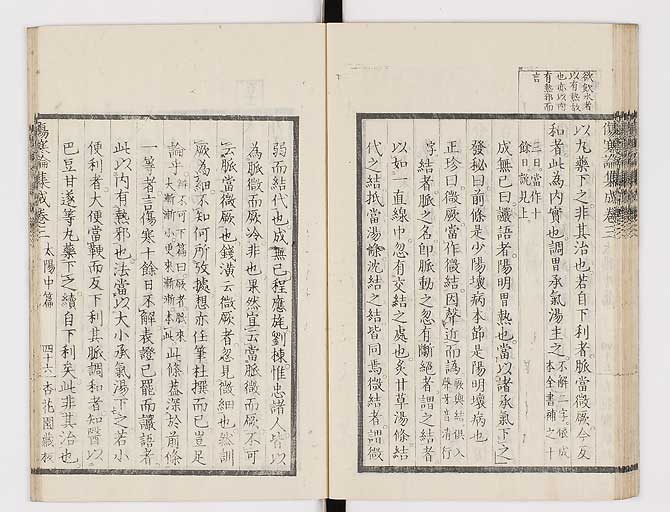 欲飲水者
以有熱故
也亦以内
有熱邪而
言
傷寒論集成卷三
以丸藥下之非其治也若自下利者脈當微厥今反
和者此為内實也調胃承氣湯主之不解二字依成本全書補之十
三日當作十餘日說見上
成無已曰讝語者陽明胃熱也當以諸承氣下之
發秘曰前條是少陽壞病本節是陽明壞病也
正珍曰微厥當作微結因聲近而譌厥與結俱入聲牙音清行
字結者脈之名即脈動之忽有斷絕者謂之結者
以如一直線中忽有交結之處也炙甘草湯條結
代之結抵當湯條沈結之結皆同焉微結者謂微
弱而結代也成無已程應旄劉棟惟忠諸人皆以
為脈微而厥冷非也果然宜云當脈微而厥不可
云脈當微厥也錢潢云微厥者忽見微細也然訓
厥為細不知何所攷據想亦任筆杜撰而已豈足
論乎辨不可下篇曰厥者脈來大漸漸小更來漸漸大本此此條蓋深於前條
一等者言傷寒十餘日不解表證已罷而讝語者
此以内有熱邪也法當以大小承氣湯下之若小
便利者大便當鞕而反下利其脈調和者知醫以
巴豆甘遂等丸藥下之續自下利矣此非其治也
傷寒論集成卷三 太陽中篇 四十六 杏花園藏板